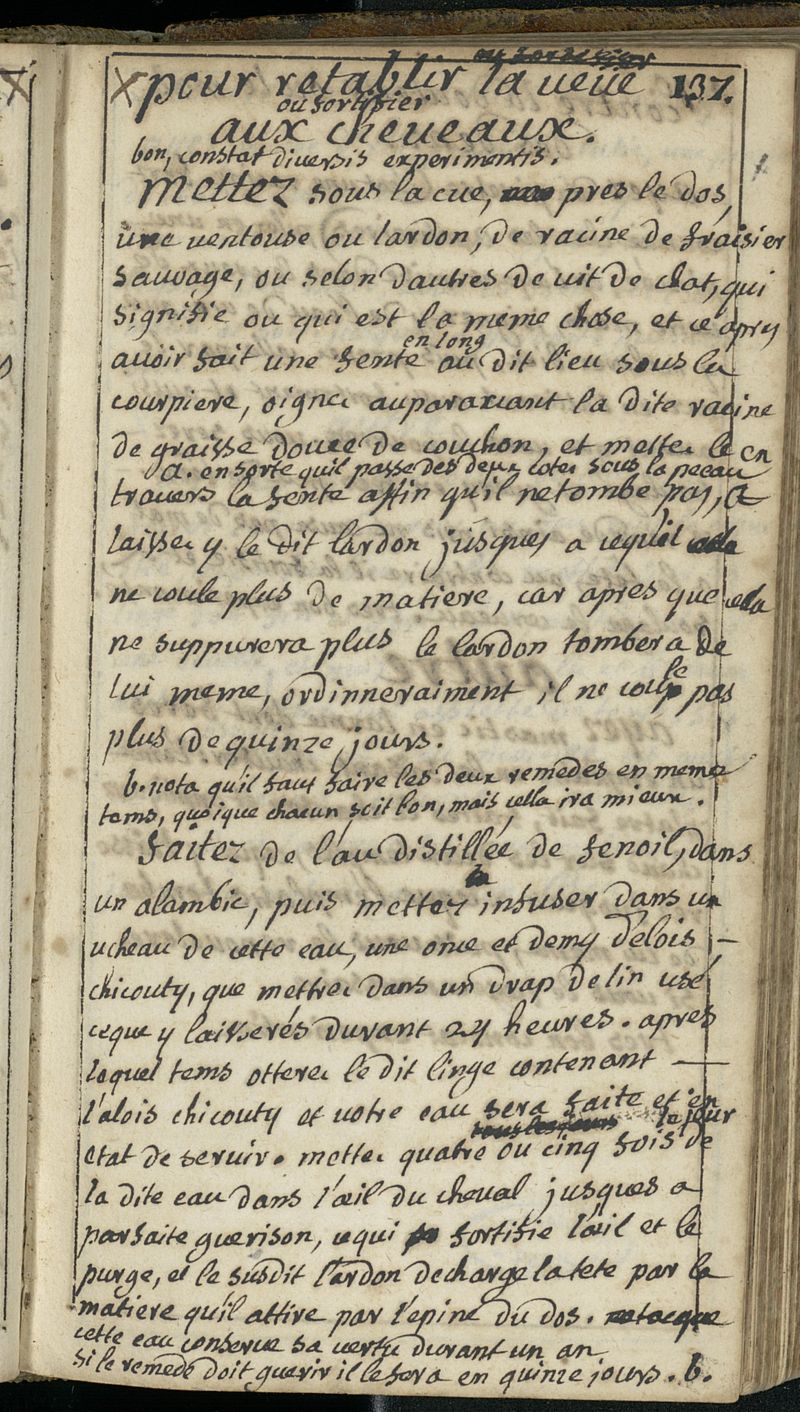 pour retablir la veüe 137.
ou fortifier
aux cheveaux.
bon, constat diversis experimentis.
Mettez sous la cue, pres le dos,
une ventouse ou lardon, de racine de fraisier
sauvage, ou selon dautres de vit de chat, qui
signifie ou qui est la meme chose, et ce apres
en long
avoir fait une fente au dit lieu sous la
courpiere, oignez auparavant la dite racine
de graisse douce de couchon, et mettez le en
a. en sorte quil passe des deux cotez sous la peau
travers la fente affin qu'il ne tombe pas, a
laissez y le dit lardon jusques a cequil
ne coule plus de matiere, car apres que cela
ne suppurera plus le lardon tombera de
lui meme, ordinneraiment il ne coule pas
plus de quinze jours.
b. nota qu'il faut faire les deux remedes en memes
tems, quoique chacun soit bon, mais cella ira mieux.
faitez de l'au distillée de fenoil, dans
un alambic, puis mettez infuser dans un
ucheau de cette eau, une once et demy d'elois
chicouty, que mettrez dans un drap de lin usé
ceque y laisserés durant 24 heures. apres
lequel tems otterez le dit linge contenant
l'alois chicouty et votre eau sera faite et en
le jour
etat de servir. mettez quatre ou cinq fois de
la dite eau dans l'œil du cheval jusques a
parfaite guerison, cequi fortifie l'œil et le
purge, et le susdit lardon decharge la tete par la
matiere qu'il attire par l'epine du dos.
cette eau conserve sa vertu durant un an
si le remede doit guerir il le fera en quinze jours. b.